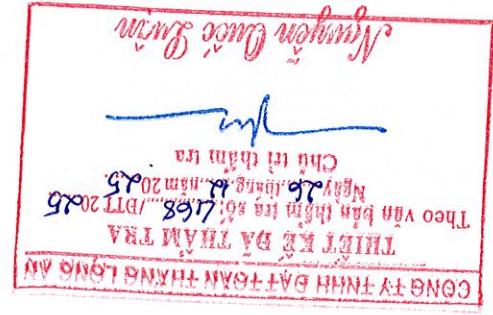 CÔNG TY TNHH ĐẠT TOÀN THẮNG LONG AN
THIẾT KẾ ĐÃ THẨM TRA
Theo văn bản thẩm tra số: 468 /ĐTT 2025
Ngày 26 tháng năm 2025
Chủ trì thẩm tra
Nguyễn Quốc